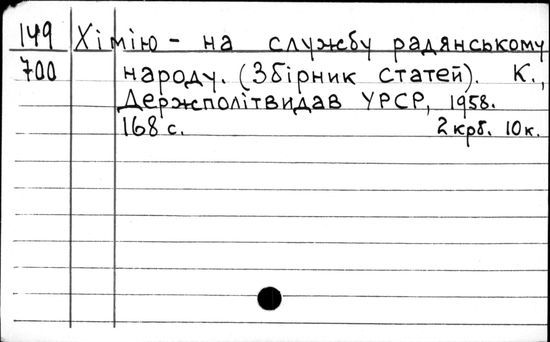 149 Хімію - на службу радянському
700 народу. (Збірник статей). К.,
Держполітвидав УРСР, 1958.
168 с. 2 крб. 10 к.